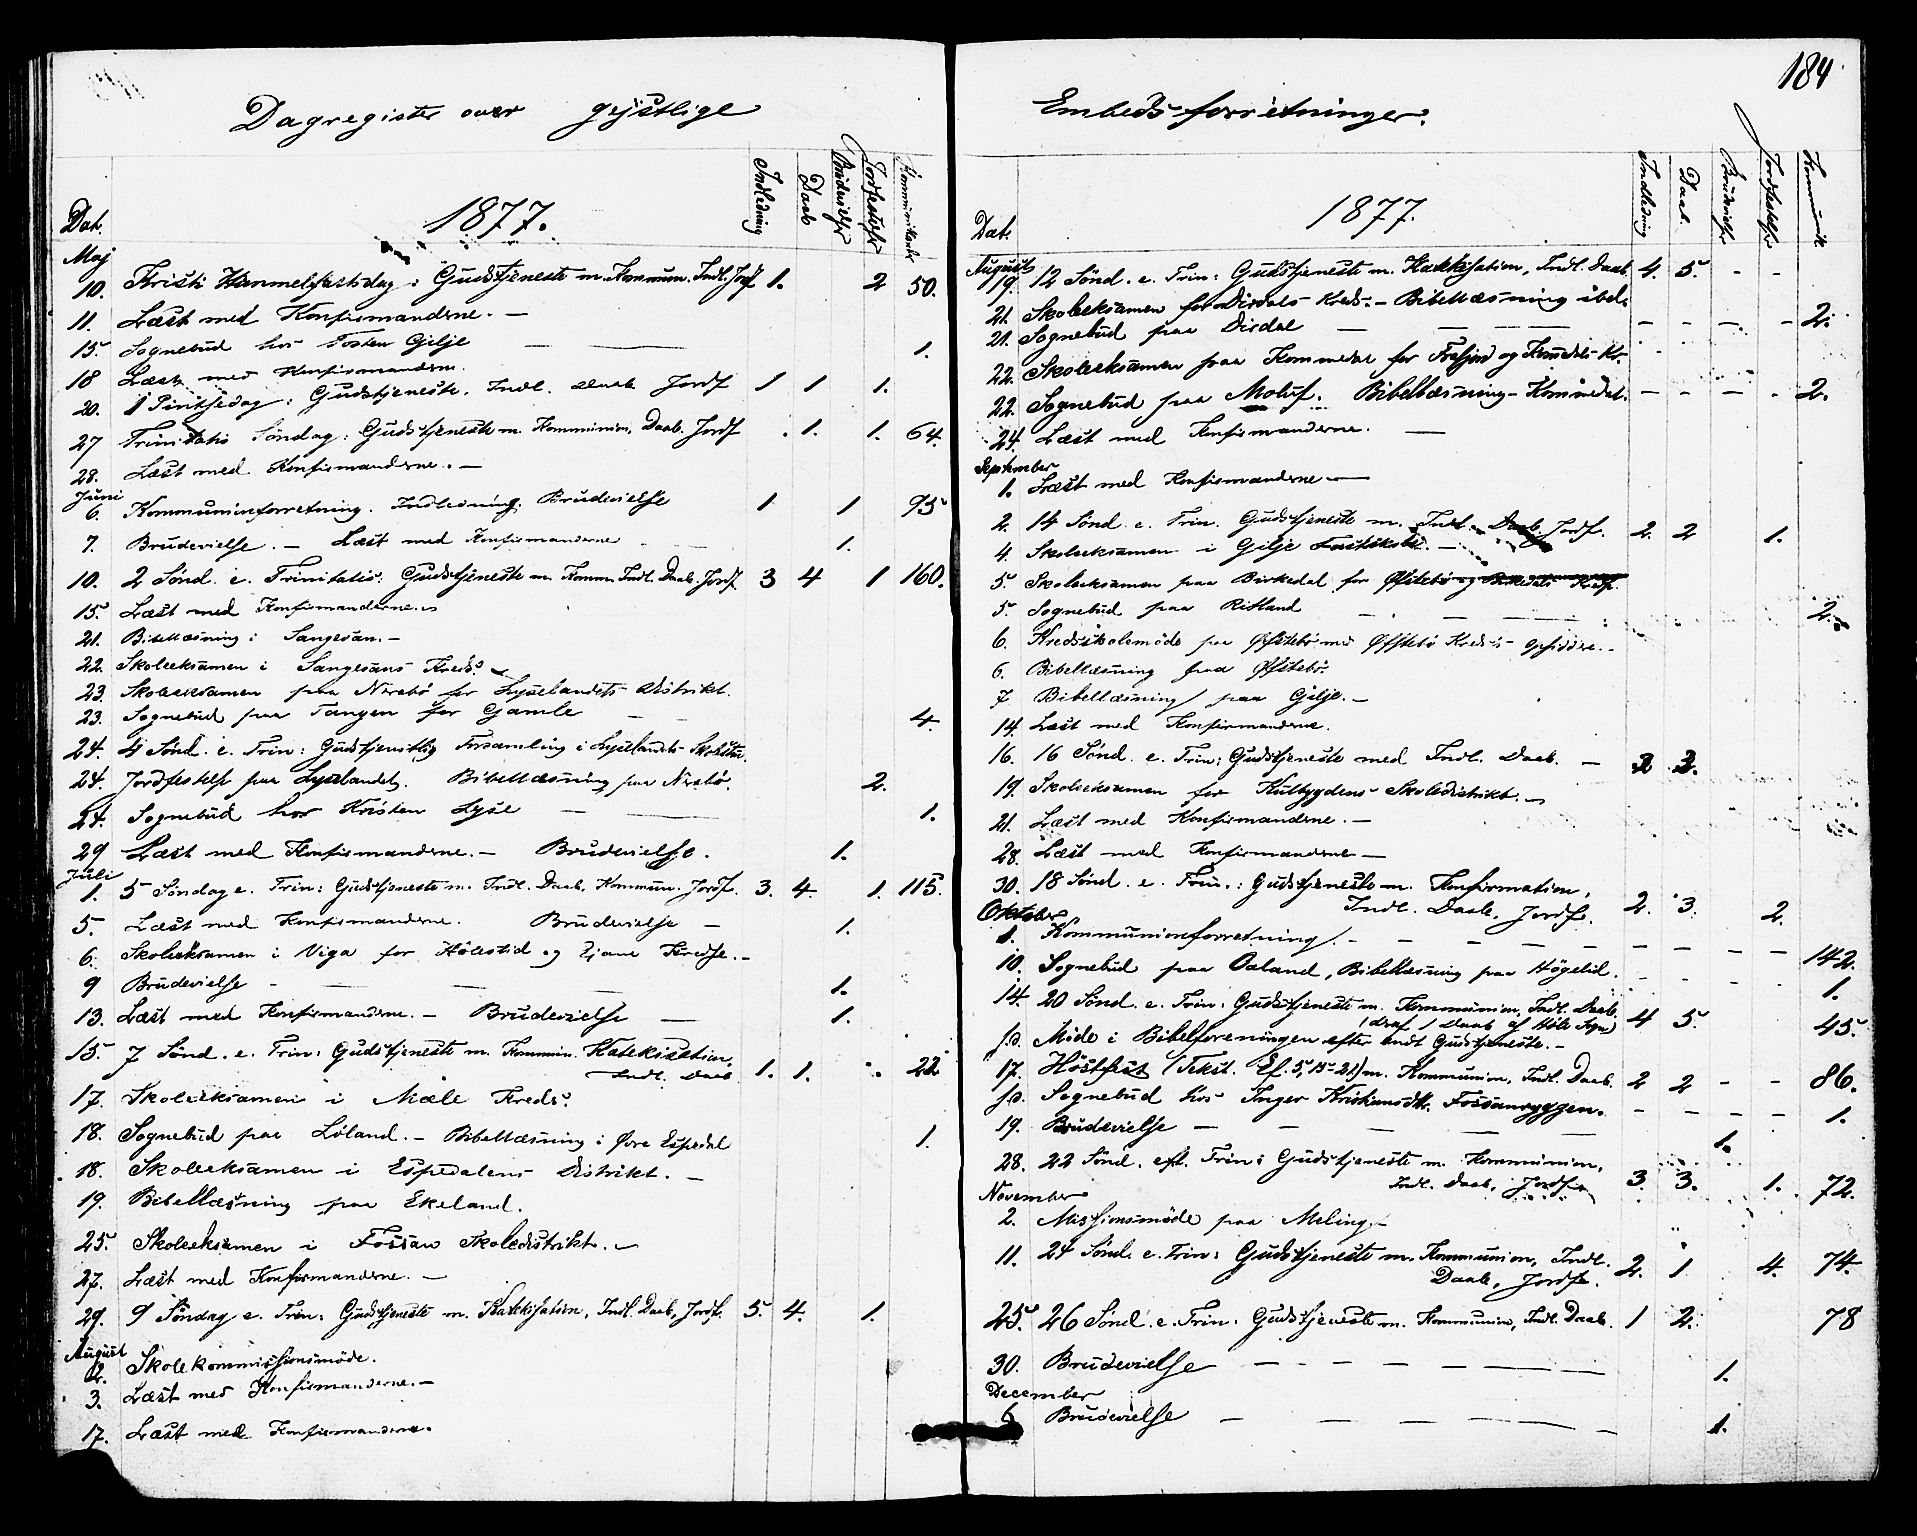 184
Dagregister over gejstlige
Embedsforretninger.
Dat. 1877. Indledning Daab Brudevielser Jordfestelser Kommunikanter
Maj
10. Kristi Himmelfartsdag: Gudstjeneste m. Kommun. Indl. Jordf 1. 2 50.
11. Læst med Konfirmanderne. —
15. Sognebud hos Tosten Gilje — — 1.
18 Læst med Konfirmanderne.
20. 1 Pintsedag: Gudstjeneste. Indl. Daab Jordf 1 1 1.
27 Trinitatis Söndag: Gudstjeneste m. Kommunion, Daab. Jordf . 1. 1. 64.
28. Læst med Konfirmanderne. —
Juni
6. Kommunionforretning. Indledning. Brudevielse 1 1 95
7. Brudevielse. — Læst med Konfirmanderne 1.
10. 2 Sönd. e. Trinitatis: Gudstjeneste m. Komm. Indl. Daab. Jordf 3 4 1 160.
15. Læst med Konfirmanderne.
21. Bibellæsning i Sangesan. —
22. Skoleeksamen i Sangesans Kreds.
23. Skoleeksamen paa Nerebö for Lyselandets Distrikt.
23. Sognebud paa Tangen for Gamle — — 4.
24. 4 Sönd. e. Trin: Gudstjenstlig Forsamling i Lyselandets Skolestu.
24. Jordfestelse paa Lyselandet. Bibellæsning paa Nerebö. 2.
24. Sognebud hos Kristen Lyse — — 1.
29 Læst med Konfirmanderne. — Brudevielse. 1.
Juli
1. 5 Söndag e. Trin: Gudstjeneste m. Indl. Daab, Kommun. Jordf. 3. 4. 1. 115.
5. Læst med Konfirmanderne. Brudevielse — 1.
6. Skoleeksamen i Viga for Hölestid og Kredse. —
9 Brudevielse — — — — 1.
13. Læst med Konfirmanderne. — Brudevielse — 1.
15. 7 Sönd. e. Trin: Gudstjeneste m. Kommun. Katekisation,
Indl. Daab 1. 1. 22
17. Skoleeksamen i Mæle Kreds.
18. Sognebud paa Löland. — Bibellæsning i övre Espedal 1.
18. Skoleeksamen i Espedalens Distrikt. —
19. Bibellæsning paa Ekeland.
25. Skoleeksamen i Fossan Skoledistrikt. —
27. Læst med Konfirmanderne. —
29. 9 Söndag e. Trin: Gudstjeneste m. Katekisation, Indl. Daab, Jordf. 5. 4. 1.
August
2. Skolekommissionsmöde.
3. Læst med Konfirmanderne. —
17. Læst med Konfirmanderne.
Dat. 1877. Indledning Daab. Brudevielser Jordfestelser Kommunik.
August
19. 12 Sönd. e. Trin: Gudstjeneste m. Katekisation, Indl. Daab. 4. 5. - -
21. Skoleeksamen for Dirdals Kreds. — Bibellæsning ibd.
21. Sognebud paa Dirdal — — — - - - - 2.
22. Skoleeksamen paa Kommedal for Frafjord og Kr.
22. Sognebud paa Bibellæsning — Kommedal. - - - . 2.
24. Læst med Konfirmanderne. —
September
1. Læst med Konfirmanderne —
2. 14 Sönd. e. Trin. Gudstjeneste m. Indl. Daab Jordf. 2. 2 1.
4. Skoleeksamen i Gilje —
5. Skoleeksamen paa Birkedal for
5. Sognebud paa Ritland — — 2.
6. Kredsskolemöde paa Öfstebö med Öfstebö Kreds's Opsiddere. —
6. Bibellæsning paa Öfstebö.
7 Bibellæsning paa Gilje. —
14. Læst med Konfirmanderne.
16. 16 Sönd. e. Trin: Gudstjeneste med Indl. Daab. — 3.
19. Skoleeksamen for Skoledistrikt. —
21. Læst med Konfirmanderne. —
28. Læst med Konfirmanderne —
30. 18 Sönd. e. Trin.: Gudstjeneste m. Konfirmation,
Indl. Daab, Jordf. 2. 3. 2.
Oktober
1. Kommunionforretning. — — — — — — 142.
10. Sognebud paa Oaland, Bibellæsning paa Högelid. 1.
14. 20 Sönd. e. Trin: Gudstjeneste m. Kommunion, Indl. Daab.
(deraf 1 Daab af Höle Sogn) 4 5. 45.
s.D. Möde i Bibelforeningen efter endt Gudstjeneste. —
17. Höstfest (Tekst. Ef. 5, 15-21) m. Kommunion, Indl. Daab. 2 2 - - 86.
s.D. Sognebud hos Inger Kristiansdtr. Fossanryggen. — — — — 1.
19. Brudevielse — — — — 1.
28. 22 Sönd. eft. Trin: Gudstjeneste m. Kommunion,
Indl. Daab, Jordf. 3. 3. 1. 72.
November
2. Missionsmöde paa Meling. —
11. 24 Sönd. e. Trin: Gudstjeneste m. Kommunion, Indl.
Daab, Jordf. 2. 1 4. 74.
25. 26 Sönd. e. Trin. Gudstjeneste m. Kommunion, Indl. Daab. 1 2. 78
30. Brudevielse — — — — — 1.
December
6 Brudevielse — — — — — 1.